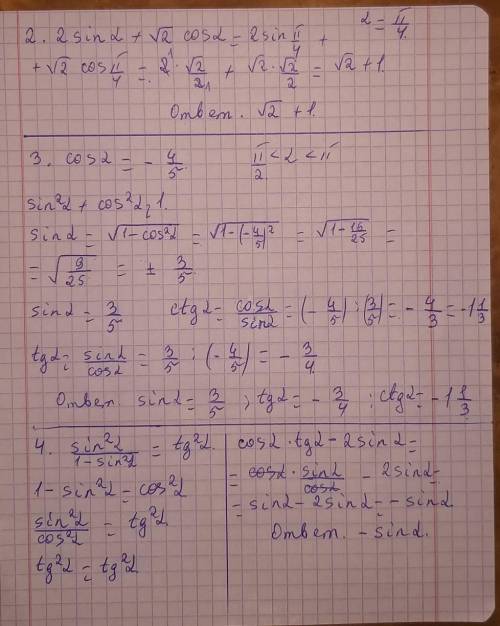 2. 2 sin α + √2 cos α = 2 sin π/4 + α = π/4
+ √2 cos π/4 = 2 · √2/2 + √2 · √2/2 = √2 + 1.
Ответ. √2 + 1.
3. cos α = - 4/5 π/2 < α < π
sin²α + cos²α = 1.
sin α = √(1-cos²α) = √(1-(-4/5)²) = √(1-16/25) =
= √(9/25) = ± 3/5
sin α = 3/5 ctg α = cos α/sin α = (-4/5) : (3/5) = - 4/3 = -1 1/3
tg α = sin α/cos α = 3/5 : (-4/5) = - 3/4
Ответ. sin α = 3/5 ; tg α = - 3/4 ; ctg α = -1 1/3
4. sin²α/(1-sin²α) = tg²α.
1 - sin²α = cos²α
sin²α/cos²α = tg²α.
tg²α = tg²α.
cos α · tg α - 2 sin α =
= cos α · sin α/cos α - 2 sin α =
= sin α - 2 sin α = - sin α
Ответ. - sin α.